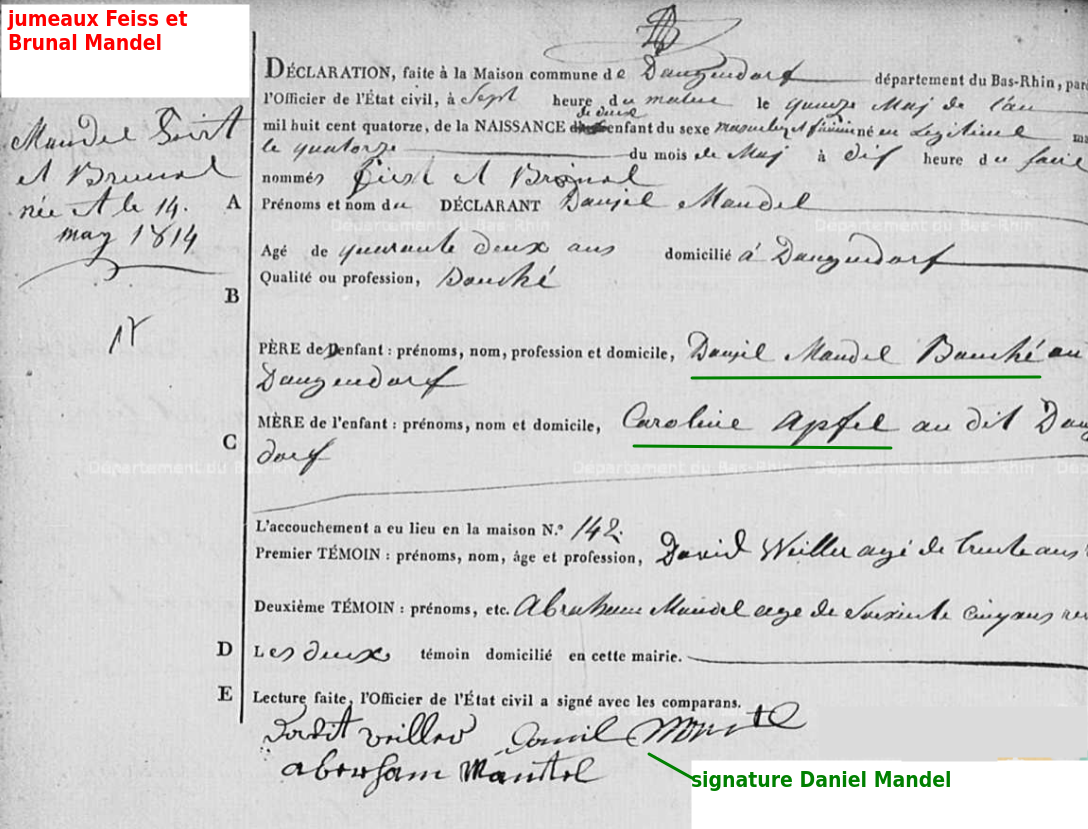 jumeaux Feiss et
Brunal Mandel
Mandel Feist
et Brunal
née et le 14.
may 1814
A
B
C
D
E
DÉCLARATION, faite à la Maison commune de Dauendorf département du Bas-Rhin, par
l'Officier de l'État civil, à Sept heure du matin le quinze Maj de l'an
mil huit cent quatorze, de la NAISSANCE de deux enfant du sexe masculin et féminine né en Legitime
le quatorze du mois de Maj à dix heure du
nommés Feist et Brunal
Prénoms et nom du DÉCLARANT Daniel Mandel
Agé de quarante deux ans domicilié à Dauendorf
Qualité ou profession,
PÈRE de l'enfant : prénoms, nom, profession et domicile, Daniel Mandel au
Dauendorf
MÈRE de l'enfant : prénoms, nom et domicile, Caroline Apfel au dit Dau
dorf
L'accouchement a eu lieu en la maison N.º 142
Premier TÉMOIN : prénoms, nom, âge et profession, David Weiller agé de trente ans
Deuxième TÉMOIN : prénoms, etc. Abraham Mandel age de Soixante cinq ans
Les deux témoin domicilié en cette mairie.
Lecture faite, l'Officier de l'État civil a signé avec les comparans.
abersham Mantel
signature Daniel Mandel
Département du Bas-Rhin